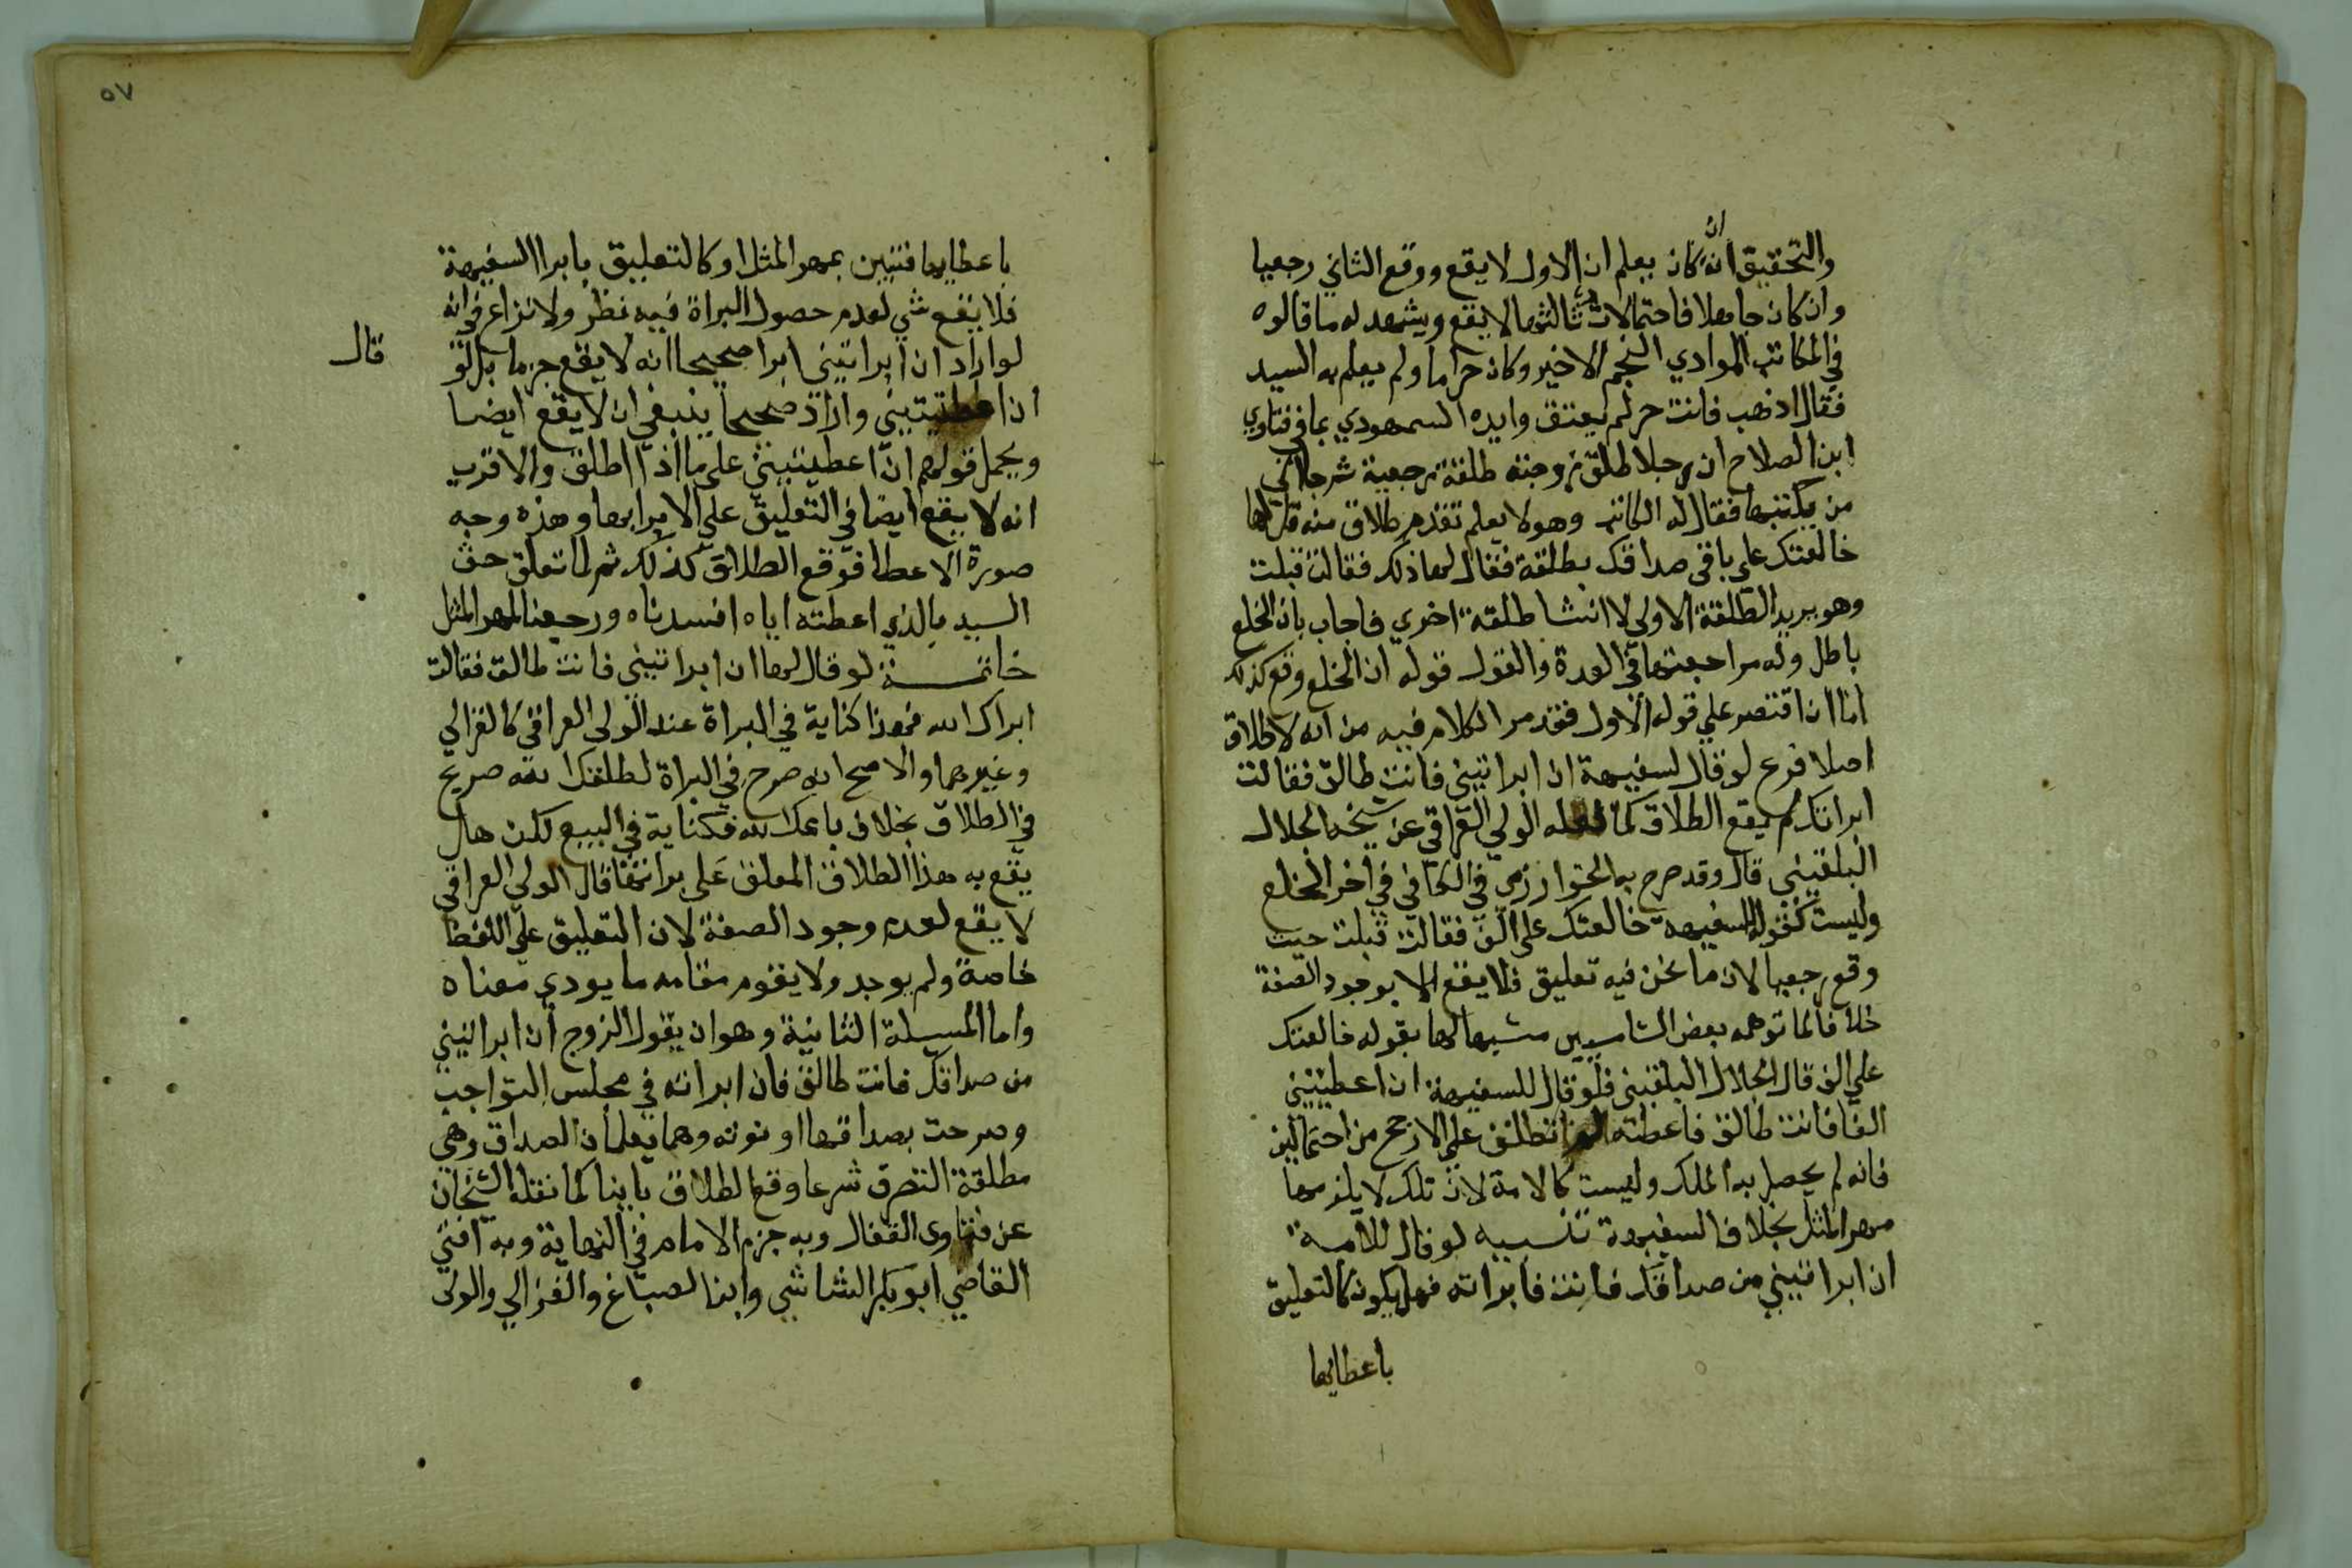 والتحقيق انه ان كان يعلم ان الاول لا يقع ووقع الثاني رجعيا
وان كان جاهلا فاحتمالات ثالثها لا يقع ويشهد له ما قالوه
في المكاتب الموادي النجم الاخير وكان حراما ولم يعلم به السيد
فقال اذهب فانت حر لم يعتق وايده السمهودي بما في فتاوي
ابن الصلاح ان رجلا طلق زوجته طلقة رجعية ثم جا الى
من يكتبها فقال له الكاتب وهو لا يعلم تقدم طلاق منه قل لها
خالعتك على باقي صداقك بطلقة فقال لها ذلك فقالت قبلت
وهو يريد الطلقة الاولى لا انشا طلقة اخري فاجاب بان الخلع
باطل وله مراجعتها في العدة والقول قوله ان الخلع وقع كذلك
اما ان اقتصر علي قوله الاول فقد مر الكلام فيه من انه لا طلاق
اصلا فرع لو قال لسفيهة ان ابراتيني فانت طالق فقالت
ابراتك لم يقع الطلاق كما نقله الولي العراقي عن شيخه الجلال
البلقيني قال وقد صرح به الخوارزمي في الكافي في اخر الخلع
وليست كقوله لسفيهة خالعتك على الف فقالت قبلت حيث
وقع رجعيا لان ما نحن فيه تعليق فلا يقع الا بوجود الصفة
خلافا لما توهمه بعض الشاميين مشبها لها بقوله خالعتك
علي الف قال الجلال البلقيني فلو قال للسفيهة ان اعطيتيني
الفا فانت طالق فاعطته لم تطلق علي الارجح من احتمالين
فانه لم يحصل به الملك وليست كالامة لان تلك لا يلزمها
مهر المثل بخلاف السفيهة تنبيه لو قال للامة
ان ابراتيني من صداقك فانت فابراته فهل يكون كالتعليق
باعطايها
٥٧
باعطايها فتبين بمهر المثل او كالتعليق بابرا السفيهة
فلا يقع شي لعدم حصول البراة فيه نظر ولا نزاع في انه
لو اراد ان ابراتيني ابرا صحيحا انه لا يقع جزما بل لو قال
ان اعطيتيني واراد صحيحا ينبغي ان لا يقع ايضا
ويحمل قولهم ان اعطيتيني على ما اذا اطلق والاقرب
انه لا يقع ايضا في التعليق علي الابرا بها وهذه وجه
صورة الاعطا فوقع الطلاق كذلك ثم لما تعلق حق
السيد بالذي اعطته اياه افسدناه ورجعنا لمهر المثل
خاتمة لو قال لها ان ابراتيني فانت طالق فقالت
ابراك الله فهذا كناية في البراة عند الولي العراقي كالغزالي
وغيرهما والاصح انه صرح في البراة لطلقك الله صريح
في الطلاق بخلاف باعك الله فكناية في البيع لكن هل
يقع به هذا الطلاق المعلق على براتها قال الولي العراقي
لا يقع لعدم وجود الصفة لان التعليق علي اللفظ
خاصة ولم يوجد ولا يقوم مقامه ما يودي معناه
واما المسيلة الثانية وهو ان يقول الزوج ان ابراتيني
من صداقك فانت طالق فان ابراته في مجلس التواجب
وصرحت بصداقها او نوته وهما يعلمان الصداق وهي
مطلقة التصرف شرعا وقع الطلاق باينا كما نقله الشيخان
عن فتاوى القفال وبه جزم الامام في النهاية وبه افتي
القاضي ابو بكر الشاشي وابن الصباغ والغزالي والولى